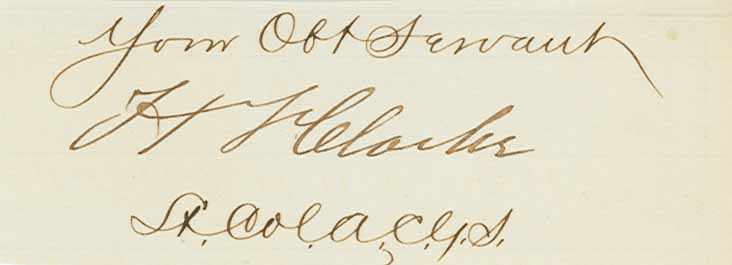 Your Obt Servant
H F Clarke
Lt. Col. A.C.G.S.